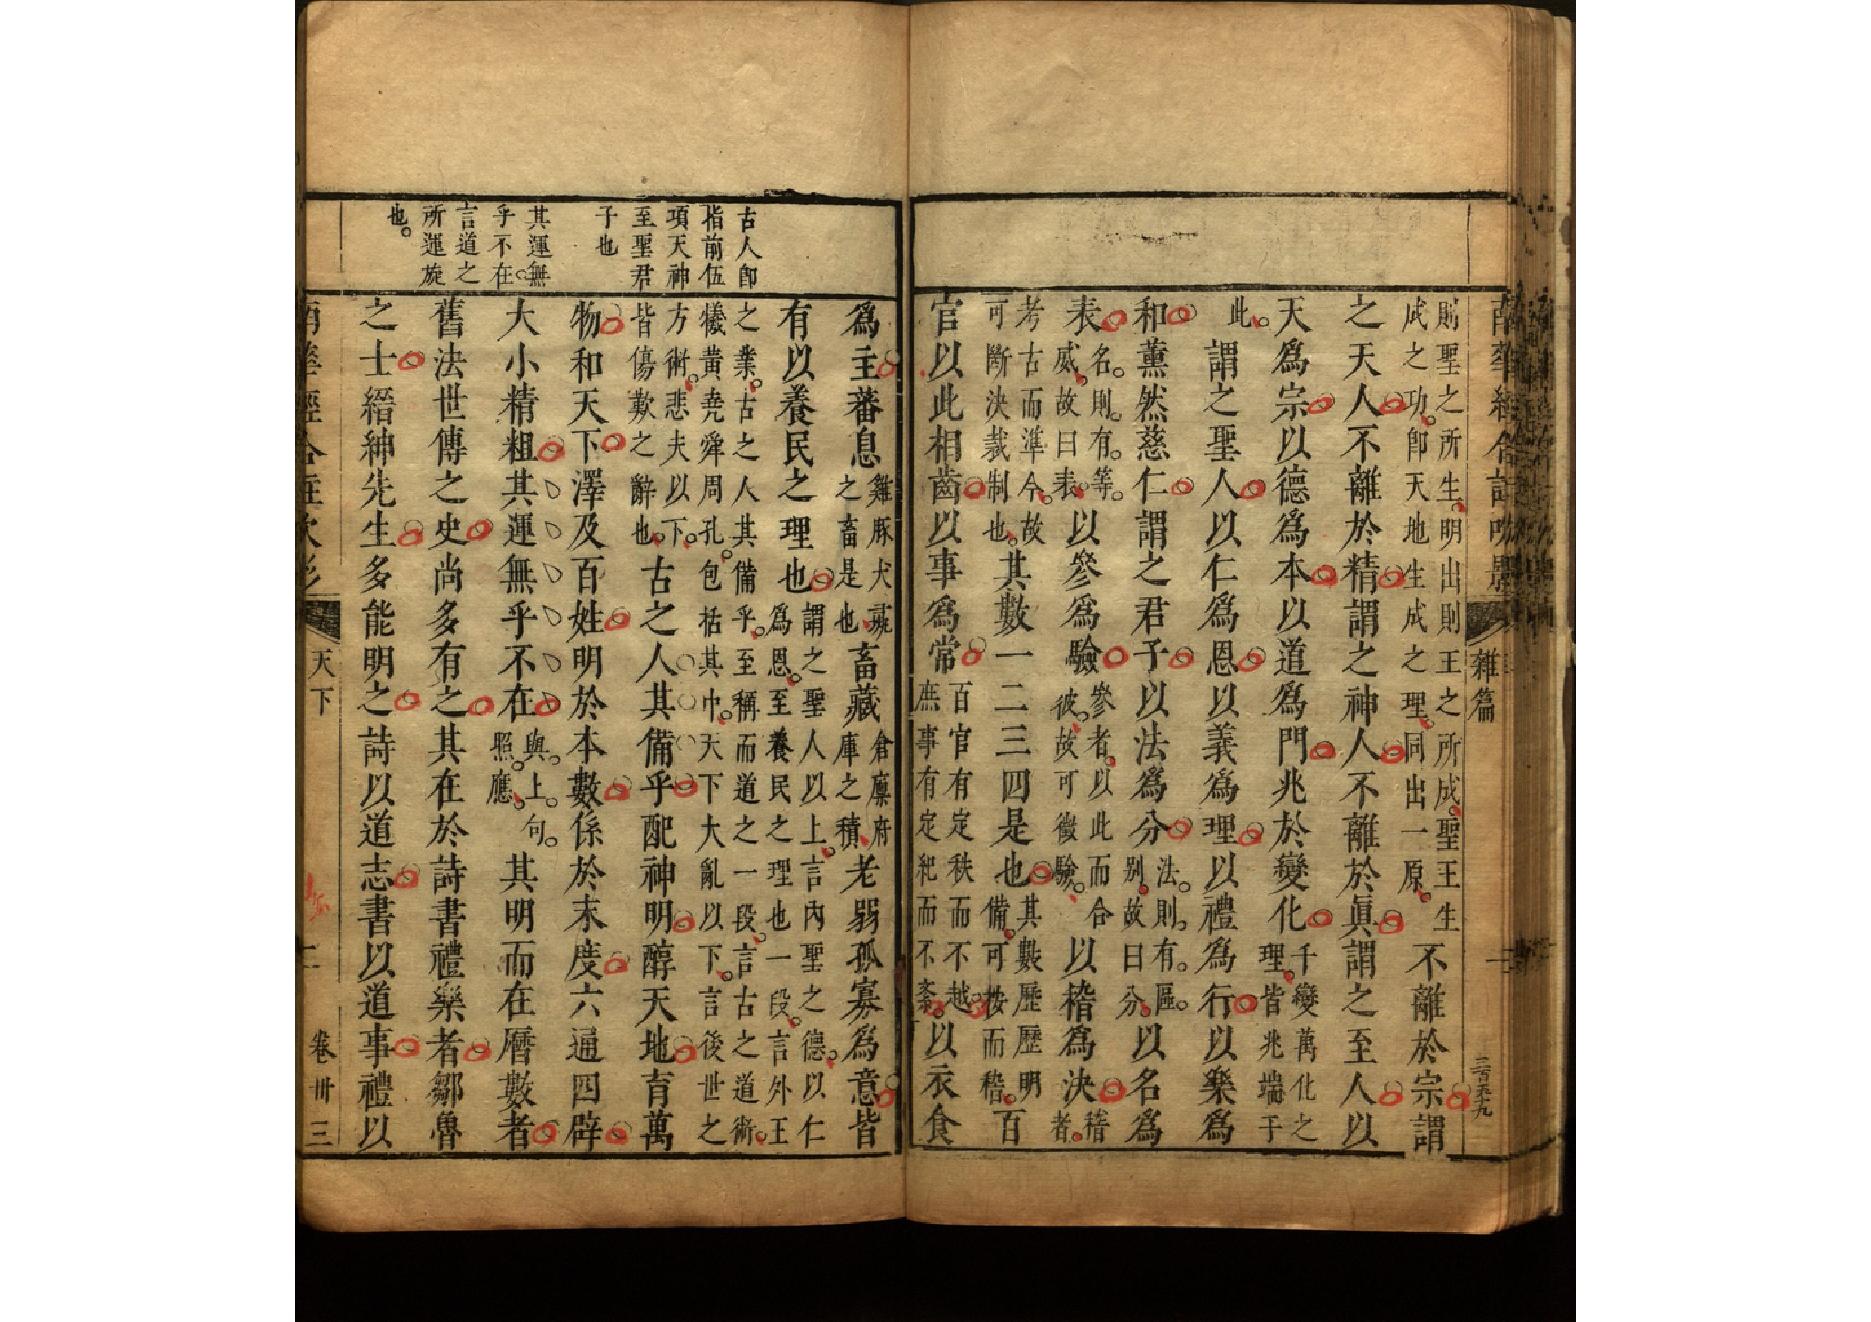 南華經合註吹影 雜篇
則聖之所生。明出則王之所成。聖王生成之功。卽天地生成之理。同出一原。不離於宗謂
之天人不離於精謂之神人不離於眞謂之至人以
天爲宗以德爲本以道爲門兆於變化千變萬化之理。皆兆端于
此。謂之聖人以仁爲恩以義爲理以禮爲行以樂爲
和薰然慈仁謂之君子以法爲分法。則。有。區。別。故曰分。以名爲
表名。則。有。等。威。故曰表。以參爲驗參者。以此而合彼。故可徵驗。以稽爲決稽者。
考古而準今。故可斷決裁制也。其數一二三四是也其數歷歷明備。可按而稽。百
官以此相齒以事爲常百官有定秩而不越。庶事有定紀而不紊。以衣食
古人卽
指前伍
項天神
至聖君
子也
其運無
乎不在。
言道之
所運旋
也。
爲主蕃息雞豚犬彘之畜是也。畜藏倉廩府庫之積。老弱孤寡爲意皆
有以養民之理也謂之聖人以上。言內聖之德。以仁爲恩。至養民之理也一段。言外王
之業。古之人其備乎。至稱而道之一段。言古之道術。犧黃堯舜周孔。包括其中。天下大亂以下。言後世之
方術。悲夫以下。皆傷歎之辭也。古之人其備乎配神明醇天地育萬
物和天下澤及百姓明於本數係於末度六通四辟
大小精粗其運無乎不在與。上。句。照。應。其明而在曆數者
舊法世傳之史尚多有之其在於詩書禮樂者鄒魯
之士縉紳先生多能明之詩以道志書以道事禮以
南華經合註吹影 天下 二 卷卅三